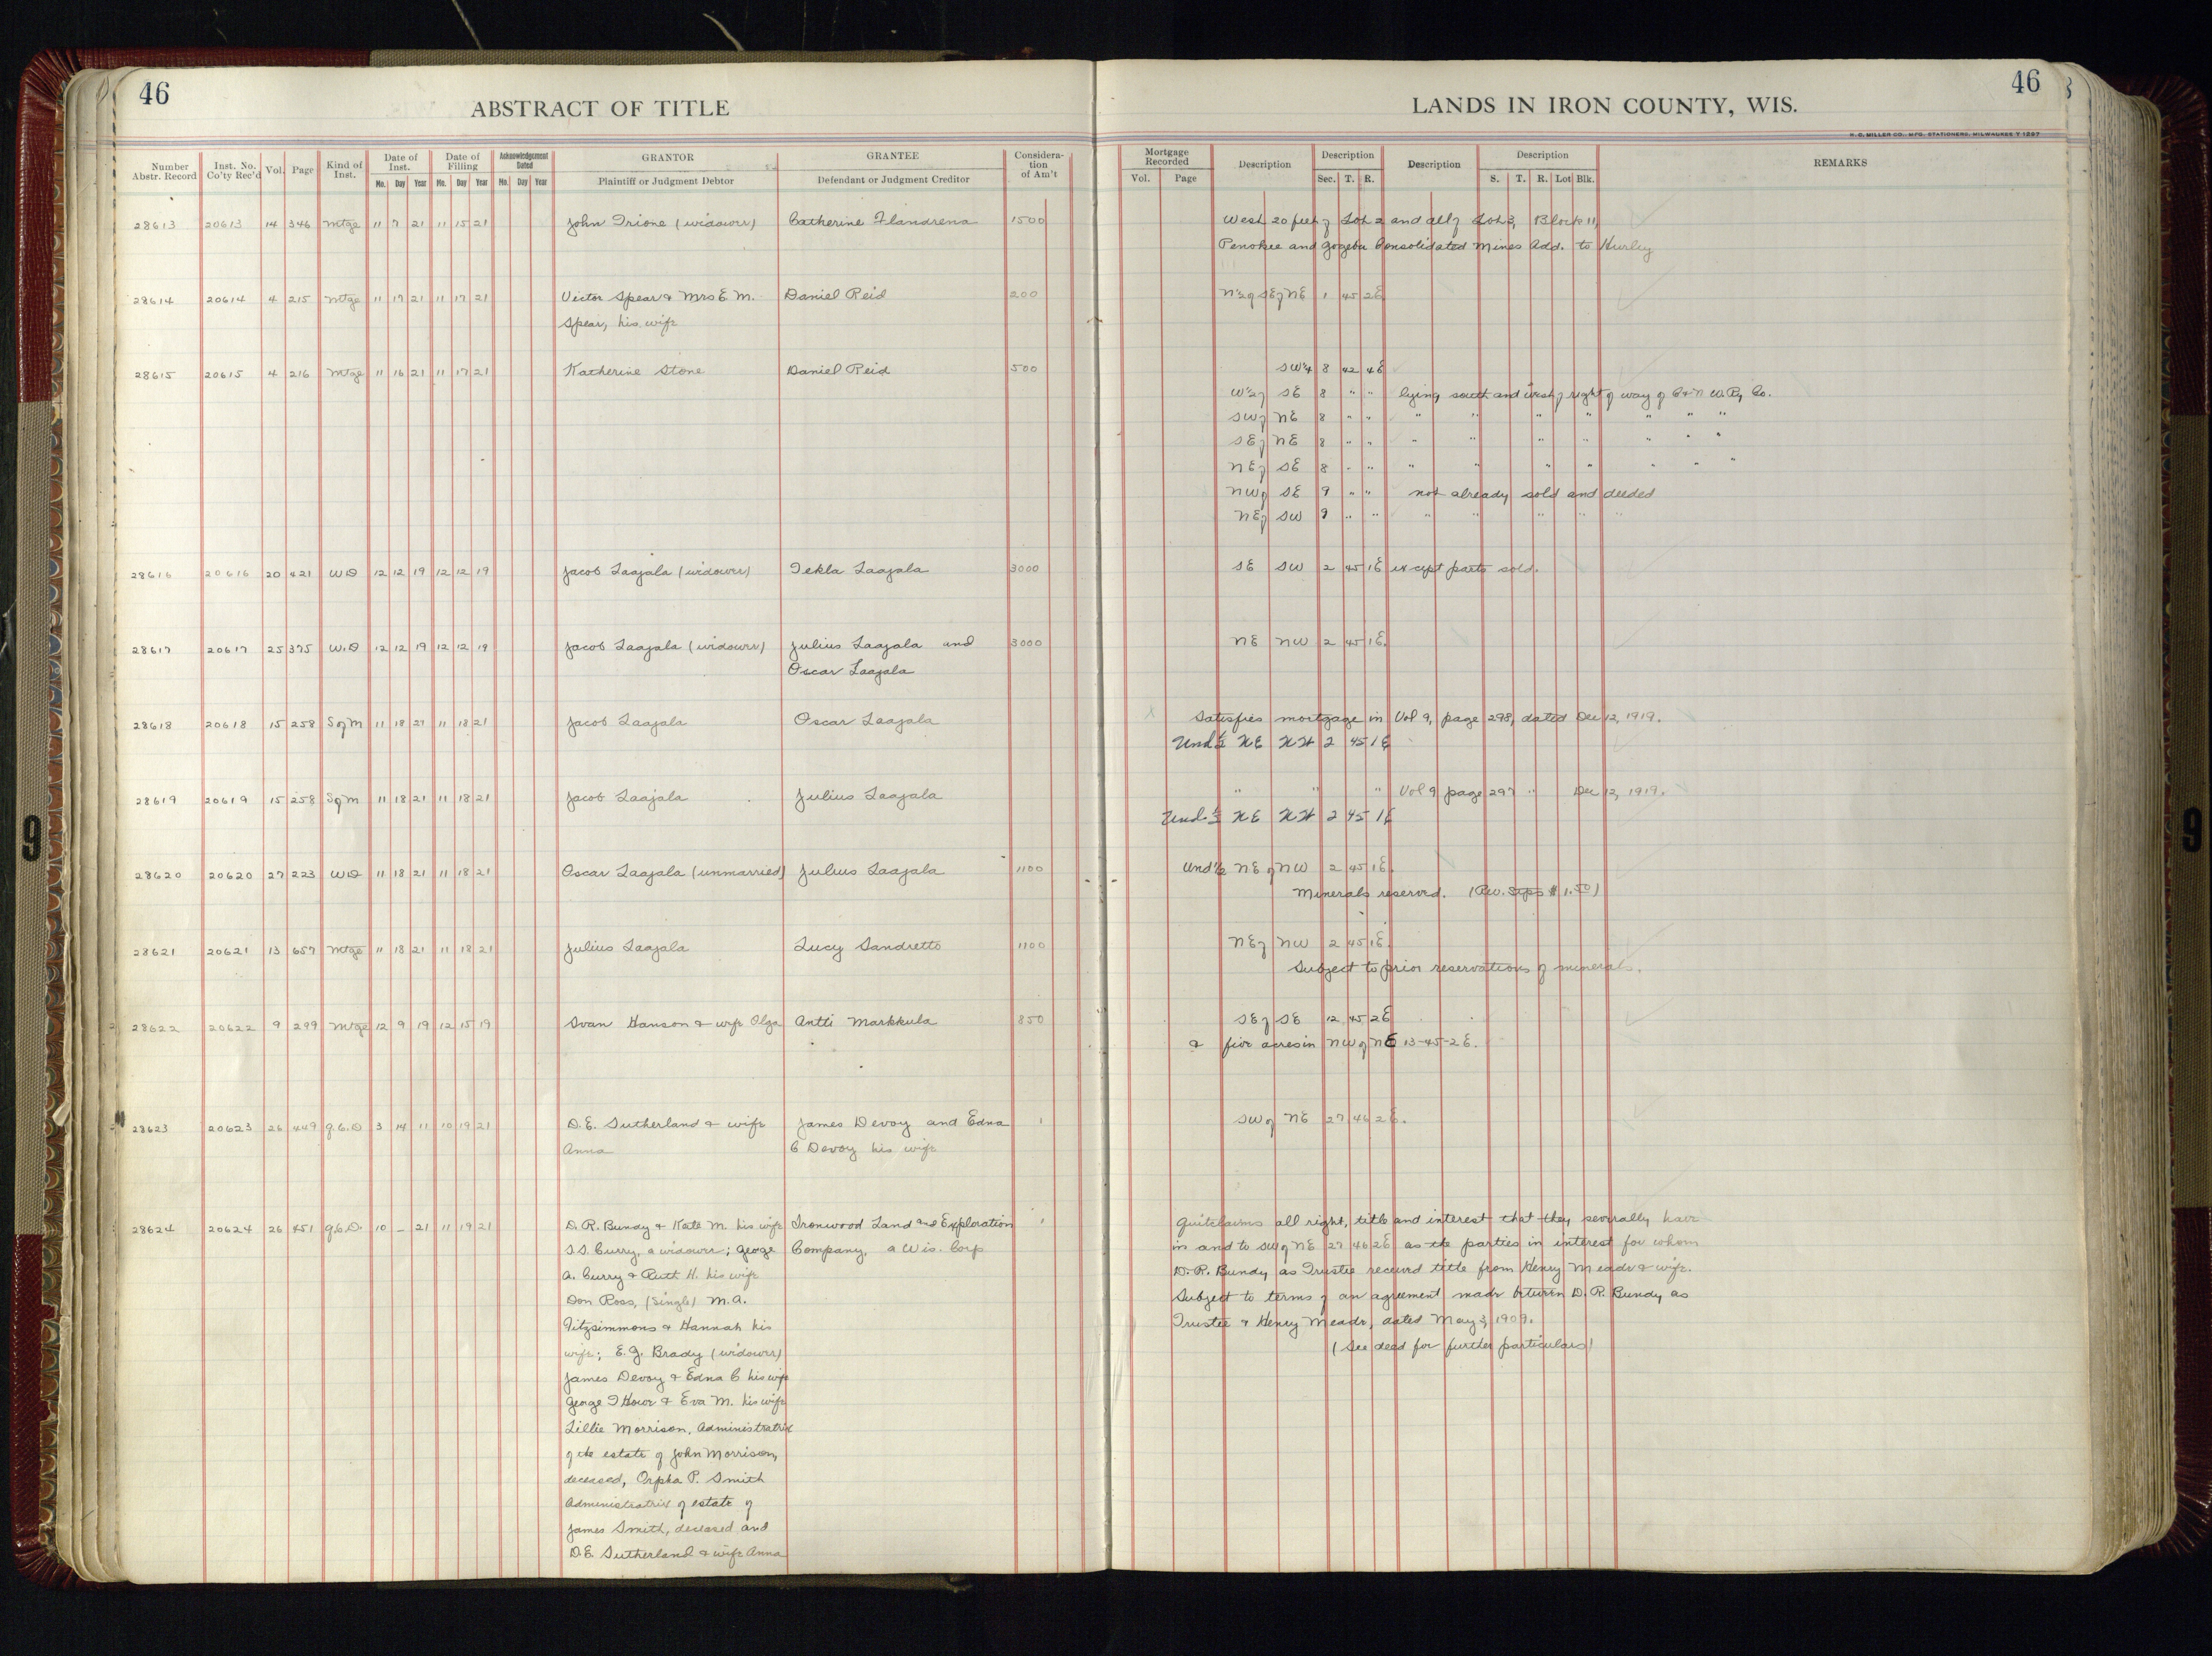 46
ABSTRACT OF TITLE
Number Abstr. Record
Inst. No. Co'ty Rec'd
Vol.
Page
Kind of Inst.
Date of Inst.
Mo. Day Year
Date of Filing
Mo. Day Year
Acknowledgement Dated
Mo. Day Year
GRANTOR
Plaintiff or Judgment Debtor
GRANTEE
Defendant or Judgment Creditor
Considera-tion of Am't
46
LANDS IN IRON COUNTY, WIS.
H. C. MILLER CO., MFG. STATIONERS, MILWAUKEE
Mortgage Recorded
Vol. Page
Description
Description
Sec. T. R.
Description
Description
S. T. R. Lot Blk.
REMARKS
28613 20613 14 346 Mtge 11 7 21 11 15 21 John Trione (widower) Catherine Flandrena 1500 West 20 feet of Lot 2 and all of Lot 3, Block 11,
Penokee and Gogebic Consolidated Mines Add. to Hurley
28614 20614 4 215 Mtge 11 17 21 11 17 21 Victor Spear & Mrs E. M. Daniel Reid 200 N½ of SE of NE 1 45 2E
Spear, his wife
28615 20615 4 216 Mtge 11 16 21 11 17 21 Katherine Stone Daniel Reid 500 SW¼ 8 42 4E
W½ of SE 8 " " lying south and west of right of way of C & N W. Ry. Co.
SW of NE 8 " " " " " " " " "
SE of NE 8 " " " " " " " " "
NE of SE 8 " " " " " " " " "
NW of SE 9 " " not already sold and deeded
NE of SW 9 " " " " " " "
28616 20616 20 421 WD 12 12 19 12 12 19 Jacob Laajala (widower) Tekla Laajala 3000 SE SW 2 45 1E except parts sold.
28617 20617 25 375 W.D 12 12 19 12 12 19 Jacob Laajala (widower) Julius Laajala and 3000 NE NW 2 45 1E.
Oscar Laajala
28618 20618 15 258 S of M 11 18 21 11 18 21 Jacob Laajala Oscar Laajala Satisfies mortgage in Vol 9, page 298, dated Dec 12, 1919.
Und ½ NE NW 2 45 1E
28619 20619 15 258 S of M 11 18 21 11 18 21 Jacob Laajala Julius Laajala " " " Vol 9 page 297 " Dec 12, 1919.
Und. ½ NE NW 2 45 1E
28620 20620 27 223 WD 11 18 21 11 18 21 Oscar Laajala (unmarried) Julius Laajala 1100 Und ½ NE of NW 2 45 1E.
Minerals reserved. (Rev. Stps $1.50)
28621 20621 13 657 Mtge 11 18 21 11 18 21 Julius Laajala Lucy Sandretto 1100 NE of NW 2 45 1E.
Subject to prior reservations of minerals.
28622 20622 9 299 Mtge 12 9 19 12 15 19 Svan Hanson & wife Olga Antti Markkula 850 SE of SE 12 45 2E
& five acres in NW of NE 13-45-2E.
28623 20623 26 449 Q.C.D 3 14 11 10 19 21 D.E. Sutherland & wife James Devoy and Edna 1 SW of NE 27 46 2E.
Anna C Devoy his wife
28624 20624 26 451 Q.C.D. 10 - 21 11 19 21 D. R. Bundy & Kate M. his wife Ironwood Land and Exploration 1 Quitclaims all right, title and interest that they severally have
S.S. Curry, a widower; George Company, a Wis. Corp in and to SW of NE 27 46 2E as the parties in interest for whom
A. Curry & Ruth H. his wife D. R. Bundy as Trustee received title from Henry Meade & wife.
Don Ross, (single) M.A. Subject to terms of an agreement made between D. R. Bundy as
Fitzsimmons & Hannah his Trustee & Henry Meade, dated May 3, 1909.
wife; E.J. Brady (widower) (See deed for further particulars)
James Devoy & Edna C his wife
George T Howe & Eva M. his wife
Lillie Morrison, Administratrix
of the estate of John Morrison,
deceased, Orpha P. Smith
Administratrix of estate of
James Smith, deceased and
D.E. Sutherland & wife Anna
9
9